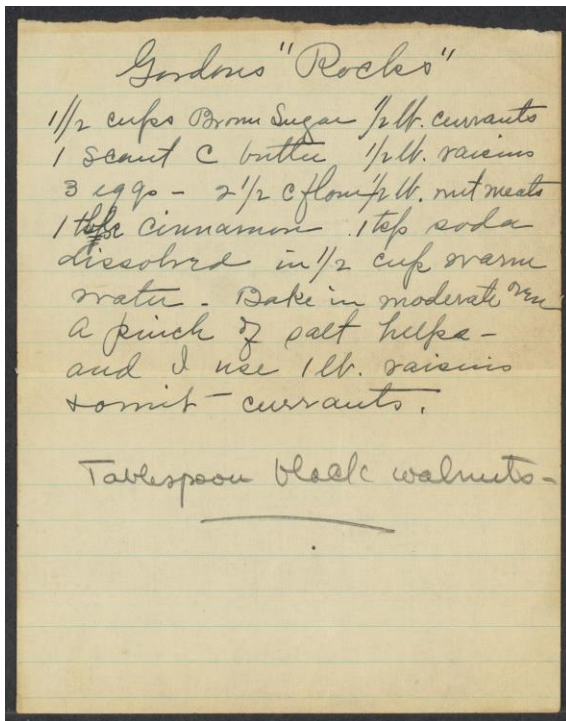 Gordons "Rocks"
1 1/2 cups Brown Sugar 1/2 lb. currants
1 scant C butter 1/2 lb. raisins
3 eggs - 2 1/2 C flour 1/2 lb. nut meats
1 cinnamon 1 tsp soda
dissolved in 1/2 cup warm
water - Bake in moderate oven
A pinch of salt helps -
and I use 1 lb. raisins
& omit - currants.
Tablespoon black walnuts -